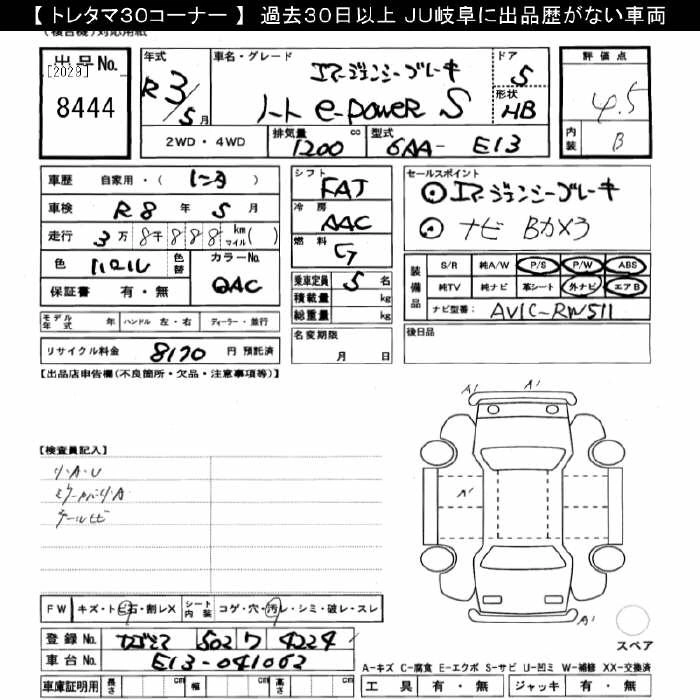 【トレタマ30コーナー】 過去30日以上 JU岐阜に出品歴がない車両
出品No. 年式 車名・グレード ドア 評価点
[2029] R3/5月 エマージェンシーブレーキ 5 4.5
8444 ノート e-POWER S 形状 HB 内装 B
2WD・4WD 排気量 1200 cc 型式 6AA- E13
車歴 自家用・( ) シフト FAT セールスポイント
車検 R8年5月 冷房 AAC ⊙エマージェンシーブレーキ
走行 3万8千888 km マイル( ) 燃料 G ⊙ナビ Bカメラ
色 パール 色替 カラーNo. QAC
保証書 有・無 乗車定員 5名
積載量 kg
総重量 kg
装備品 S/R 純A/W P/S P/W ABS
純TV 純ナビ 革シート 外ナビ エアB
ナビ型番: AVIC-RW511
モデル年式 年 ハンドル 左・右 ディーラー・並行
名変期限 月 日 後日品
リサイクル料金 8170 円 預託済
【出品店申告欄(不良箇所・欠品・注意事項等)】
A' A'
【検査員記入】
リ・A・U
テールヒ
A'
A'
FW キズ・トビ石・割レX シート内装 コゲ・穴・汚レ・シミ・破レ・スレ
スペア
登録No. 502 ワ 4224
車台No. E13-041062
A-キズ C-腐食 E-エクボ S-サビ U-凹ミ W-補修 XX-交換済
車庫証明用 長さ cm 幅 cm 高さ cm 工具 有・無 ジャッキ 有・無